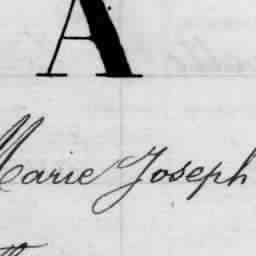 A
Marie Joseph